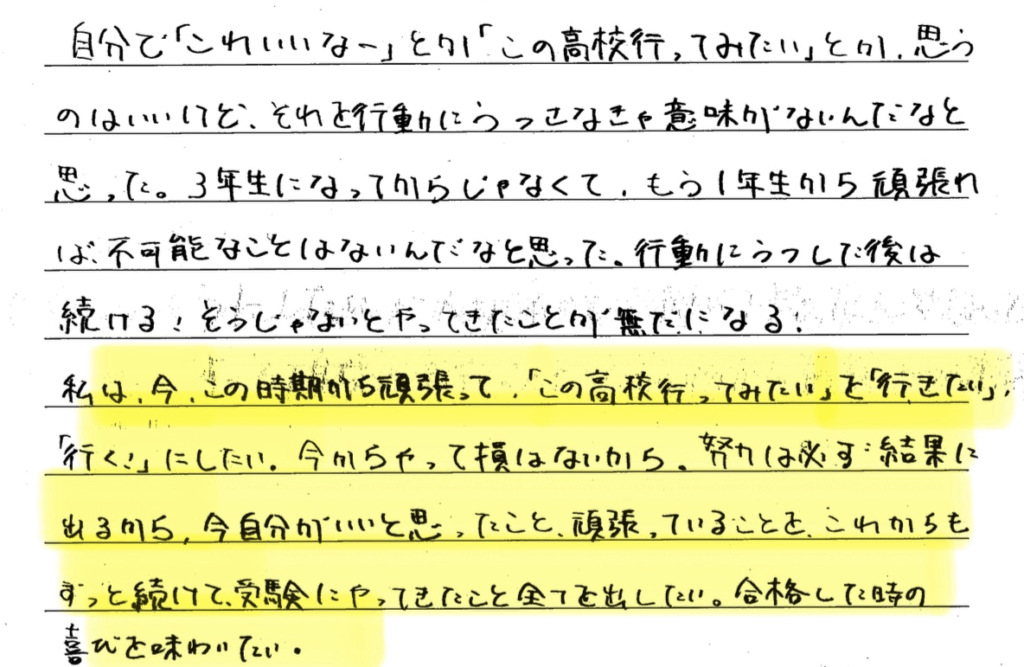 自分で「これいいなー」とか「この高校行ってみたい」とか、思う
のはいいけど、それを行動にうつさなきゃ意味がないんだなと
思った。3年生になってからじゃなくて、もう1年生から頑張れ
ば、不可能なことはないんだなと思った。行動にうつした後は
続ける!そうじゃないとやってきたことが無だになる!
私は、今、この時期から頑張って、「この高校行ってみたい」を「行きたい」、
「行く!」にしたい。今からやって損はないから。努力は必ず結果に
出るから、今自分がいいと思ったこと、頑張っていることを、これからも
ずっと続けて、受験にやってきたこと全てを出したい。合格した時の
喜びを味わいたい。